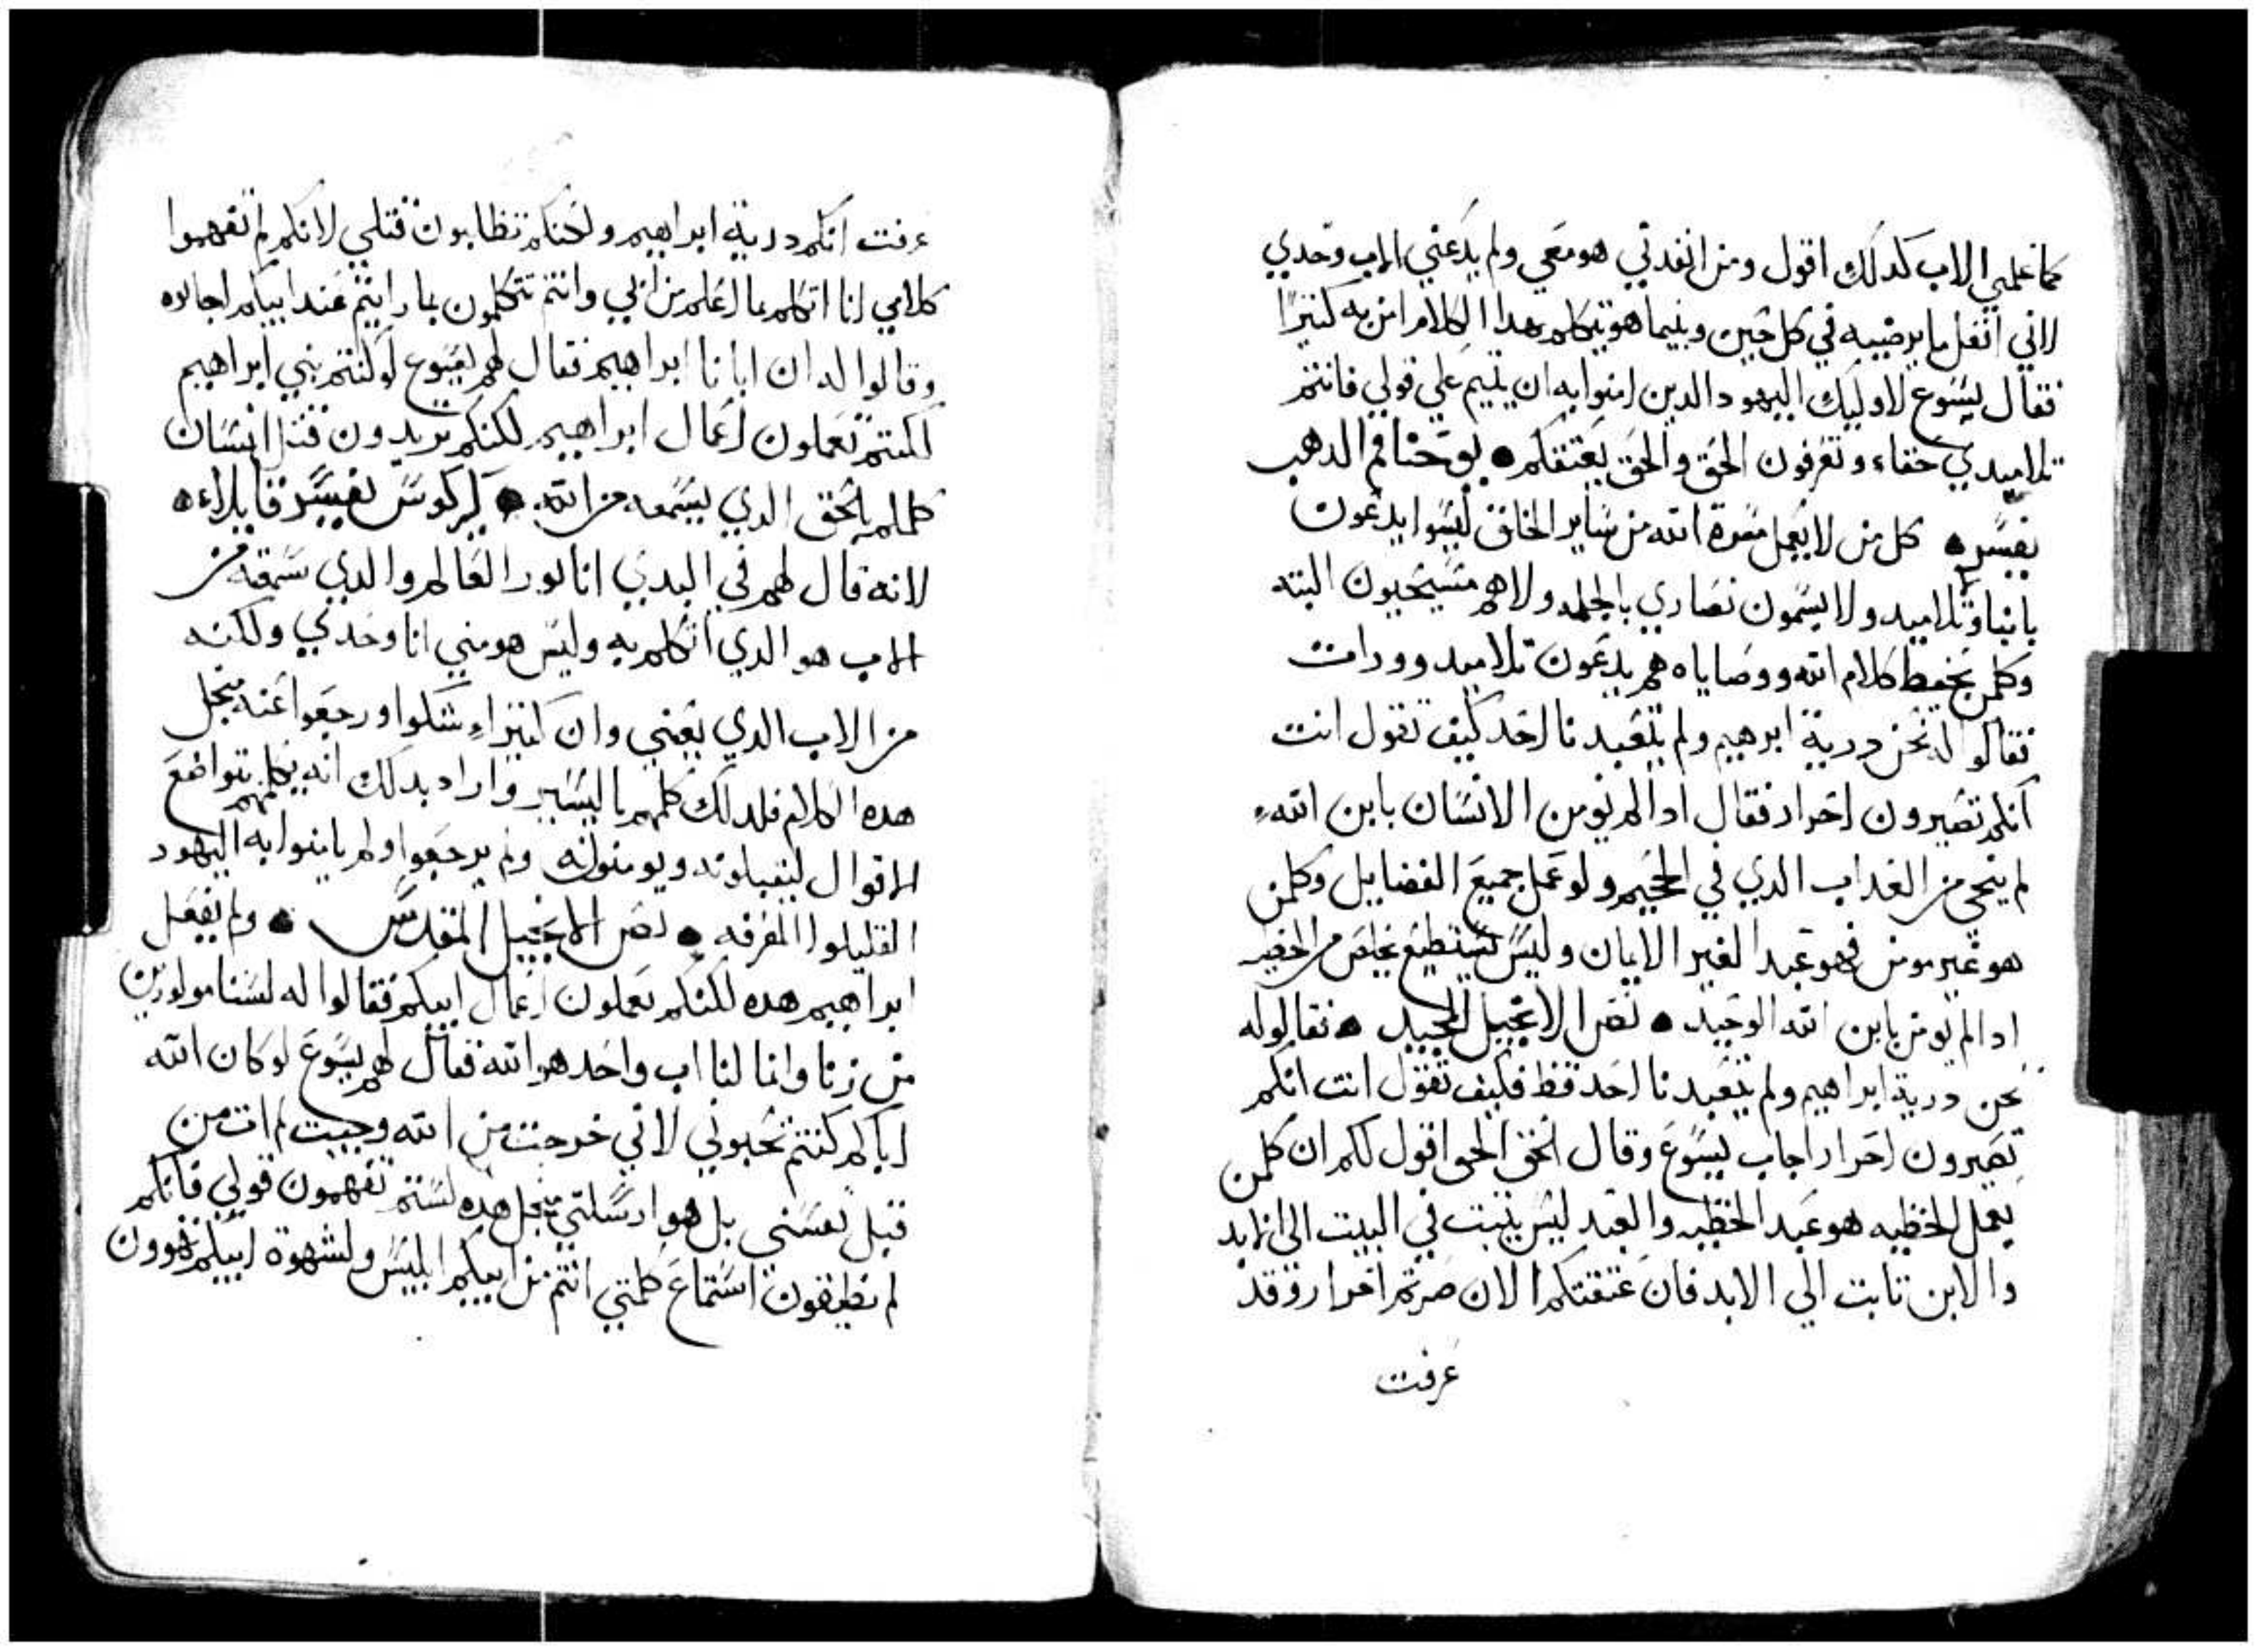 كما علمني الاب كدلك اقول ومن انفدني هو معي ولم يدعني الاب وحدي
لاني افعل ما يرضيه في كل حين وبنيما هو يتكلم هدا الكلام امن به كتيرًا
فقال يسوع لاوليك اليهود الدين امنوا به ان تبتم علي قولي فانتم
تلاميدي حقاء وتعرفون الحق والحق يعتقكم • يوحنا فم الدهب
يفسر • كل من لا يعمل مسرة الله من ساير الخلق ليسوا يدعون
بابنا وتلاميد ولا يسمون نصاري بالجمله ولا هم مسيحيون البته
وكلمن يحفظ كلام الله ووصاياه هم يدعون تلاميد وورات
فقالوا له نحن درية ابرهيم ولم يتعبدنا احد كيف تقول انت
انكم تصيرون احرار فقال ادا لم يومن الانسان بابن الله
لم ينجي من العداب الدي في الجحيم ولو عمل جميع الفضايل وكلمن
هو غير مومن فهو عبد لغير الايمان وليس يستطيع يخلص من الخطيه
ادا لم يومن بابن الله الوحيد • نص الانجيل المجيد • فقالو له
نحن درية ابراهيم ولم يتعبدنا احد قط فكيف تقول انت انكم
تصيرون احرار اجاب يسوع وقال الحق الحق اقول لكم ان كلمن
يعمل الخطيه هو عبد الخطيه والعبد ليس يتبت في البيت الى الابد
والابن تابت الي الابد فان عتقتكم الان صرتم احرار وقد
عرفت
عرفت انكم درية ابراهيم ولكنكم تطلبون قتلي لانكم لم تفهموا
كلامي انا اتكلم بما اعلم من ابي وانتم تتكلمون بما رايتم عند ابيكم اجابوه
وقالوا له ان ابانا ابراهيم فقال لهم يسوع لو كنتم بني ابراهيم
لكنتم تعملون اعمال ابراهيم لكنكم تريدون قتل انسان
كلمكم بالحق الدي يسمعه من الله • كيركوس يفسر قايلاء •
لانه قال لهم في البدي انا نور العالم والدي سمعته من
الاب هو الدي اتكلم به وليس هو مني انا وحدي ولكنه
من الاب الدي بعتني وان كتيراء شكوا ورجعوا عنه منجل
هده الكلام فلدلك كلمهم باليسير واراد بدلك انه يكلمهم بتواضع
الاقوال ليقبلونه ويومنوا به ولم يرجعوا ولم يامنوا به اليهود
القليلوا المعرفه • نص الانجيل المقدس • ولم يفعل
ابراهيم هده لكنكم تعملون اعمال ابيكم فقالوا له لسنا مولودين
من زنا وانما لنا اب واحد هو الله فقال لهم يسوع لو كان الله
اباكم كنتم تحبوني لاني خرجت من الله وجيت لم ات من
قبل نفسي بل هو ارسلني منجل هده لستم تفهمون قولي فانكم
لم تطيقون استماع كلمتي انتم من ابيكم ابليس ولشهوة ابيكم تهوون